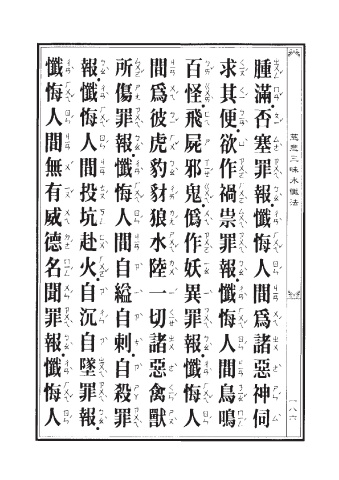 慈悲三昧水懺法
一八六
腫滿否塞罪報懺悔人間為諸惡神伺
求其便欲作禍祟罪報懺悔人間鳥鳴
百怪飛屍邪鬼偽作妖異罪報懺悔人
間為彼虎豹豺狼水陸一切諸惡禽獸
所傷罪報懺悔人間自縊自刺自殺罪
報懺悔人間投坑赴火自沉自墜罪報
懺悔人間無有威德名聞罪報懺悔人